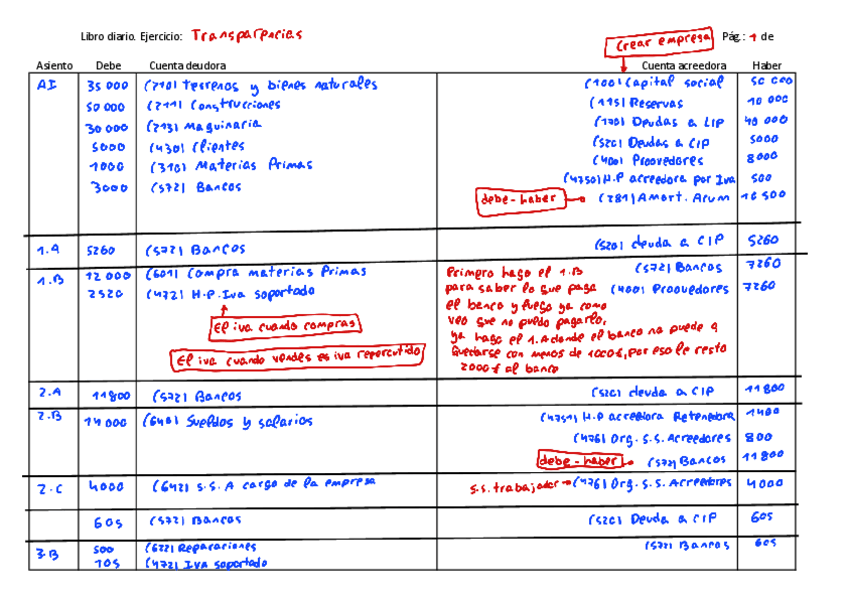 Libro diario. Ejercicio: Transparencias
Crear empresa
Pág.: 1 de
Asiento Debe Cuenta deudora Cuenta acreedora Haber
AI 35 000 (210) terrenos y bienes naturales (100) Capital social 50 000
50 000 (211) Construcciones (115) Reservas 10 000
30 000 (213) Maquinaria (170) Deudas a L/P 40 000
5000 (430) Clientes (520) Deudas a C/P 5000
1000 (310) Materias Primas (400) Proovedores 8000
3000 (572) Bancos (4750) H.P acreedora por Iva 500
debe-haber (281) Amort. Acum 10 500
1.A 5260 (572) Bancos (520) deuda a C/P 5260
1.B 12 000 (601) Compra materias Primas (572) Bancos 7260
2520 (472) H.P. Iva soportado (400) Proovedores 7260
El iva cuando compras
El iva cuando vendes es iva repercutido
Primero hago el 1.B
para saber lo que paga
el banco y luego ya como
veo que no puedo pagarlo,
ya hago el 1.A donde el banco no puede q
quedarse con menos de 1000€, por eso le resto
2000€ al banco
2.A 11800 (572) Bancos (520) deuda a C/P 11800
2.B 14 000 (640) Sueldos y salarios (4751) H.P acreedora Retenedora 1400
(476) Org. S.S. Acreedores 800
debe-haber (572) Bancos 11 800
2.C 4000 (642) S.S. A cargo de la empresa s.s. trabajador (476) Org. S.S. Acreedores 4000
605 (572) Bancos (520) Deuda a C/P 605
3.B 500 (622) Reparaciones (572) Bancos 605
105 (472) Iva soportado